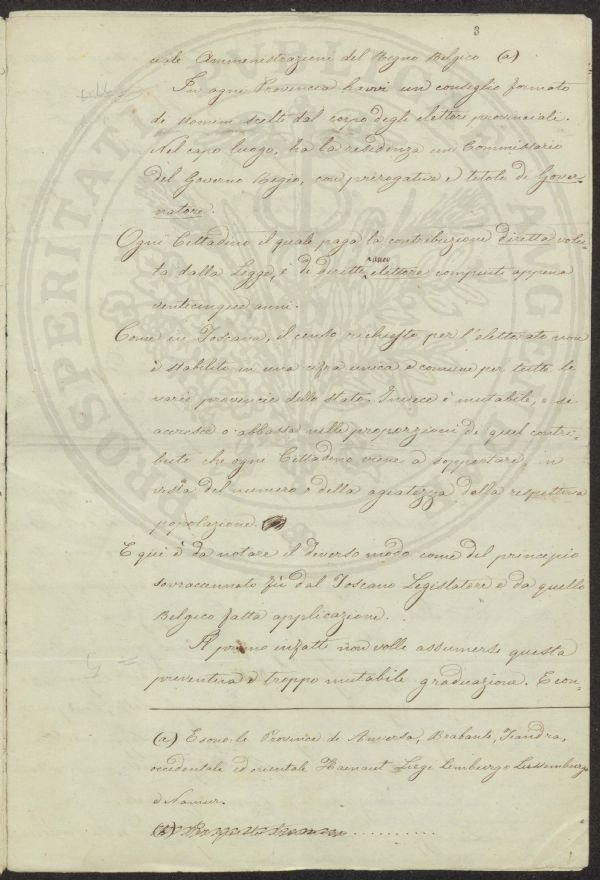 3
ci de Amministrazioni del Regno Belgico (a)
In ogni Provincia havvi un consiglio formato
di uomini scelti dal corpo degli elettori provinciali.
Nel capo luogo, ha la residenza un Commissario
del Governo Regio, con prerogative e titolo di Gover-
natore.
Ogni Cittadino il quale paga la contribuzione diretta volu-
ta dalla Legge, è di diritto elettore compiuti appena
venticinque anni.
Come in Toscana, il censo richiesto per l'elettorato non
è stabilito in una cifra unica e comune per tutte le
varie provincie dello stato. Invece è mutabile, e si
accresce o abbassa nelle proporzioni di quel contri-
buto che ogni Cittadino viene a sopportare, in
vista del numero e della agiatezza della respettiva
popolazione.
E qui è da notare il diverso modo come del principio
sovraccennato fù dal Toscano Legislatore e da quello
Belgico fatta applicazione.
Il primo infatti non volle assumersi questa
preventiva e troppo mutabile graduazione. E con-
(a) E sono le Province di Anversa, Brabante, Fiandra,
occidentale ed orientale Hainaut Liegi Limburgo Lussemburgo
e Namur.
PROSPERITATI PUBLICAE